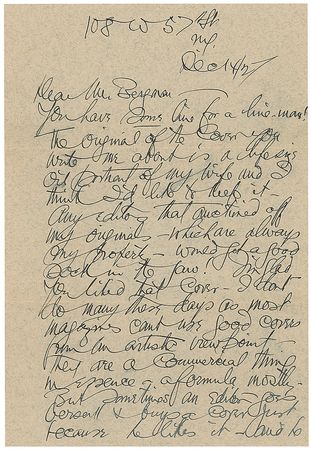 108 W 57th St
NY.
Dec 14/27
Dear Mr. Bergman
You have some line for a line-man!
the original of the cover you
wrote me about is a life size
oil portrait of my wife and I
think I'd like to keep it -
Any editor that auctioned off
my originals - which are always
my property - would get a good
sock in the jaw! I'm glad
you liked that cover - I don't
do many these days as most
magazines can't use good covers
from an artists viewpoint.
They are a commercial thing
in essence & a formula mostly -
but sometimes an editor goes
berserk & buys a cover just
because he likes it - and to